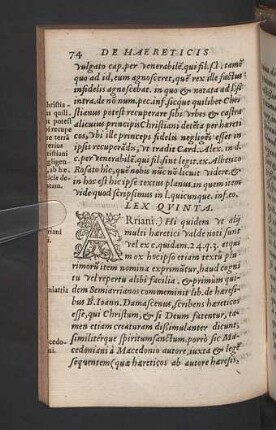 74 DE HAERETICIS
vulgato cap. per venerabilẽ. qui fil. sl. tamẽ
quo ad id, eum agnosceret, quẽ rex ille factus
infidelis agnoscebat. in quo & notata ad s. si
intra. de nõ num. pec. inf. sicque quilibet Chri-
stianus potest recuperare sibi vrbes & castra
alicuius principis Christiani detẽta per hereti
cos, vbi ille princeps fidelis negligẽs esset in
ipsis recuperãdis, vt tradit Card. Alex. in d.
c. per venerabilẽ. qui fil. sint legit. ex Alberico
Rosato hîc, que nobis nũc nõ licuit videre. &
in hoc est hic ipse textus planus. in quem item
vide quod scripsimus in l. quicunque. inf. eo.
LEX QVINTA.
ARriani.) Hi quidem vt alij
multi haeretici valde noti sunt
vel ex c. quidam. 24. q. 3. atqui
in ex hoc ipso etiam textu plu
rimorũ item nomina exprimuntur, haud cogni
tu vel repertu alibi facilia. & primùm qui-
dem Semiarrianos commeminit lib. de haeresi-
bus B. Ioann. Damascenus, scribens haereticos
esse, qui Christum, & si Deum fatentur, ta-
men etiam creaturam dissimulanter dicunt,
similiterque spiritumsanctum. porrò sic Ma-
cedoniani à Macedonio autore, iuxta & legẽ
sequentem (quae haeretici ab autore haeresis,